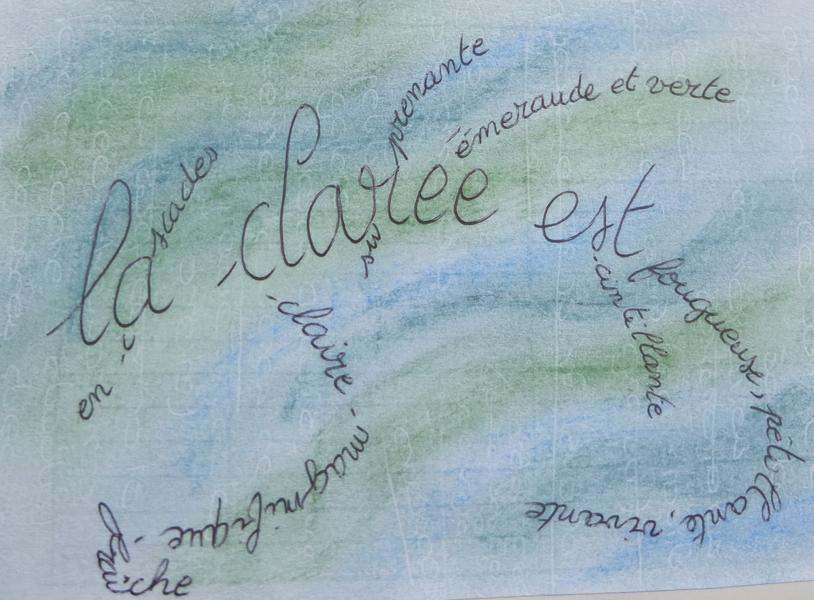 la clarée est
en cascades
surprenante
émeraude et verte
claire - magnifique - fraîche
scintillante
fougueuse, pétillante, vivante